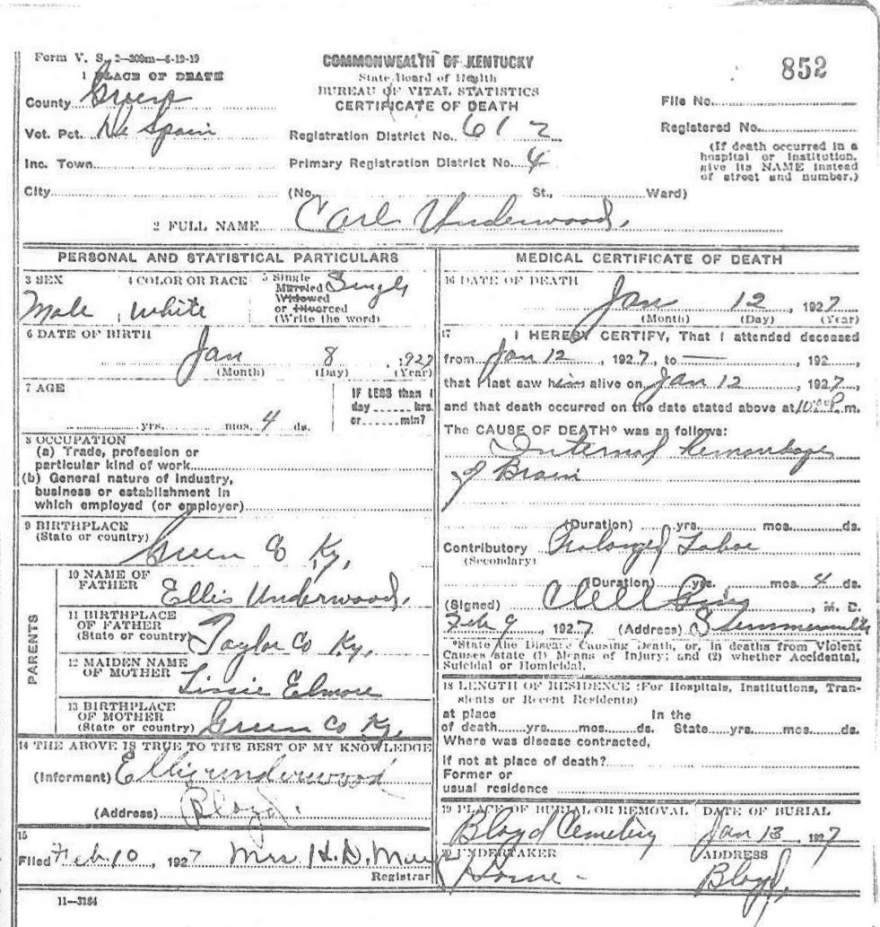 Form V. S. 2—300m—6-19-19
COMMONWEALTH OF KENTUCKY
State Board of Health
BUREAU OF VITAL STATISTICS
CERTIFICATE OF DEATH
852
1 PLACE OF DEATH
County Green
Vot. Pct. De Spain
Inc. Town
City
Registration District No. 612
Primary Registration District No. 4
(No. St., Ward)
File No.
Registered No.
(If death occurred in a
hospital or institution,
give its NAME instead
of street and number.)
2 FULL NAME Carl Underwood.
PERSONAL AND STATISTICAL PARTICULARS
3 SEX
Male
4 COLOR OR RACE
White
5 Single
Married
Widowed
or Divorced
(Write the word)
Single
6 DATE OF BIRTH
Jan 8, 1927
(Month) (Day) (Year)
7 AGE
yrs. mos. 4 ds.
IF LESS than 1
day hrs.
or min?
8 OCCUPATION
(a) Trade, profession or
particular kind of work
(b) General nature of industry,
business or establishment in
which employed (or employer)
9 BIRTHPLACE
(State or country) Green Co Ky.
PARENTS
10 NAME OF
FATHER Ellis Underwood.
11 BIRTHPLACE
OF FATHER
(State or country) Taylor Co Ky.
12 MAIDEN NAME
OF MOTHER Lissie Elmore
13 BIRTHPLACE
OF MOTHER
(State or country) Green Co Ky.
14 THE ABOVE IS TRUE TO THE BEST OF MY KNOWLEDGE
(Informant) Ellis underwood
(Address) Bloyd.
15
Filed Feb. 10, 1927 Mrs. H. D.
Registrar
11—3184
MEDICAL CERTIFICATE OF DEATH
16 DATE OF DEATH
Jan 12, 1927
(Month) (Day) (Year)
17 I HEREBY CERTIFY, That I attended deceased
from Jan 12, 1927, to —, 192
that I last saw him alive on Jan 12, 1927,
and that death occurred on the date stated above at 10:00 P. m.
The CAUSE OF DEATH* was as follows:
Internal Hemorhage
of Brain
(Duration) yrs. mos. ds.
Contributory Prolonged Labor
(Secondary)
(Duration) yrs. mos. 4 ds.
(Signed) , M. D.
Feb 9, 1927. (Address) Summersville
*State the Disease Causing Death, or, in deaths from Violent
Causes state (1) Means of Injury; and (2) whether Accidental,
Suicidal or Homicidal.
18 LENGTH OF RESIDENCE (For Hospitals, Institutions, Tran-
sients or Recent Residents)
at place In the
of death yrs. mos. ds. State yrs. mos. ds.
Where was disease contracted,
if not at place of death?
Former or
usual residence
19 PLACE OF BURIAL OR REMOVAL
Bloyd Cemetery
DATE OF BURIAL
Jan 13, 1927
20 UNDERTAKER
Home -
ADDRESS
Bloyd,